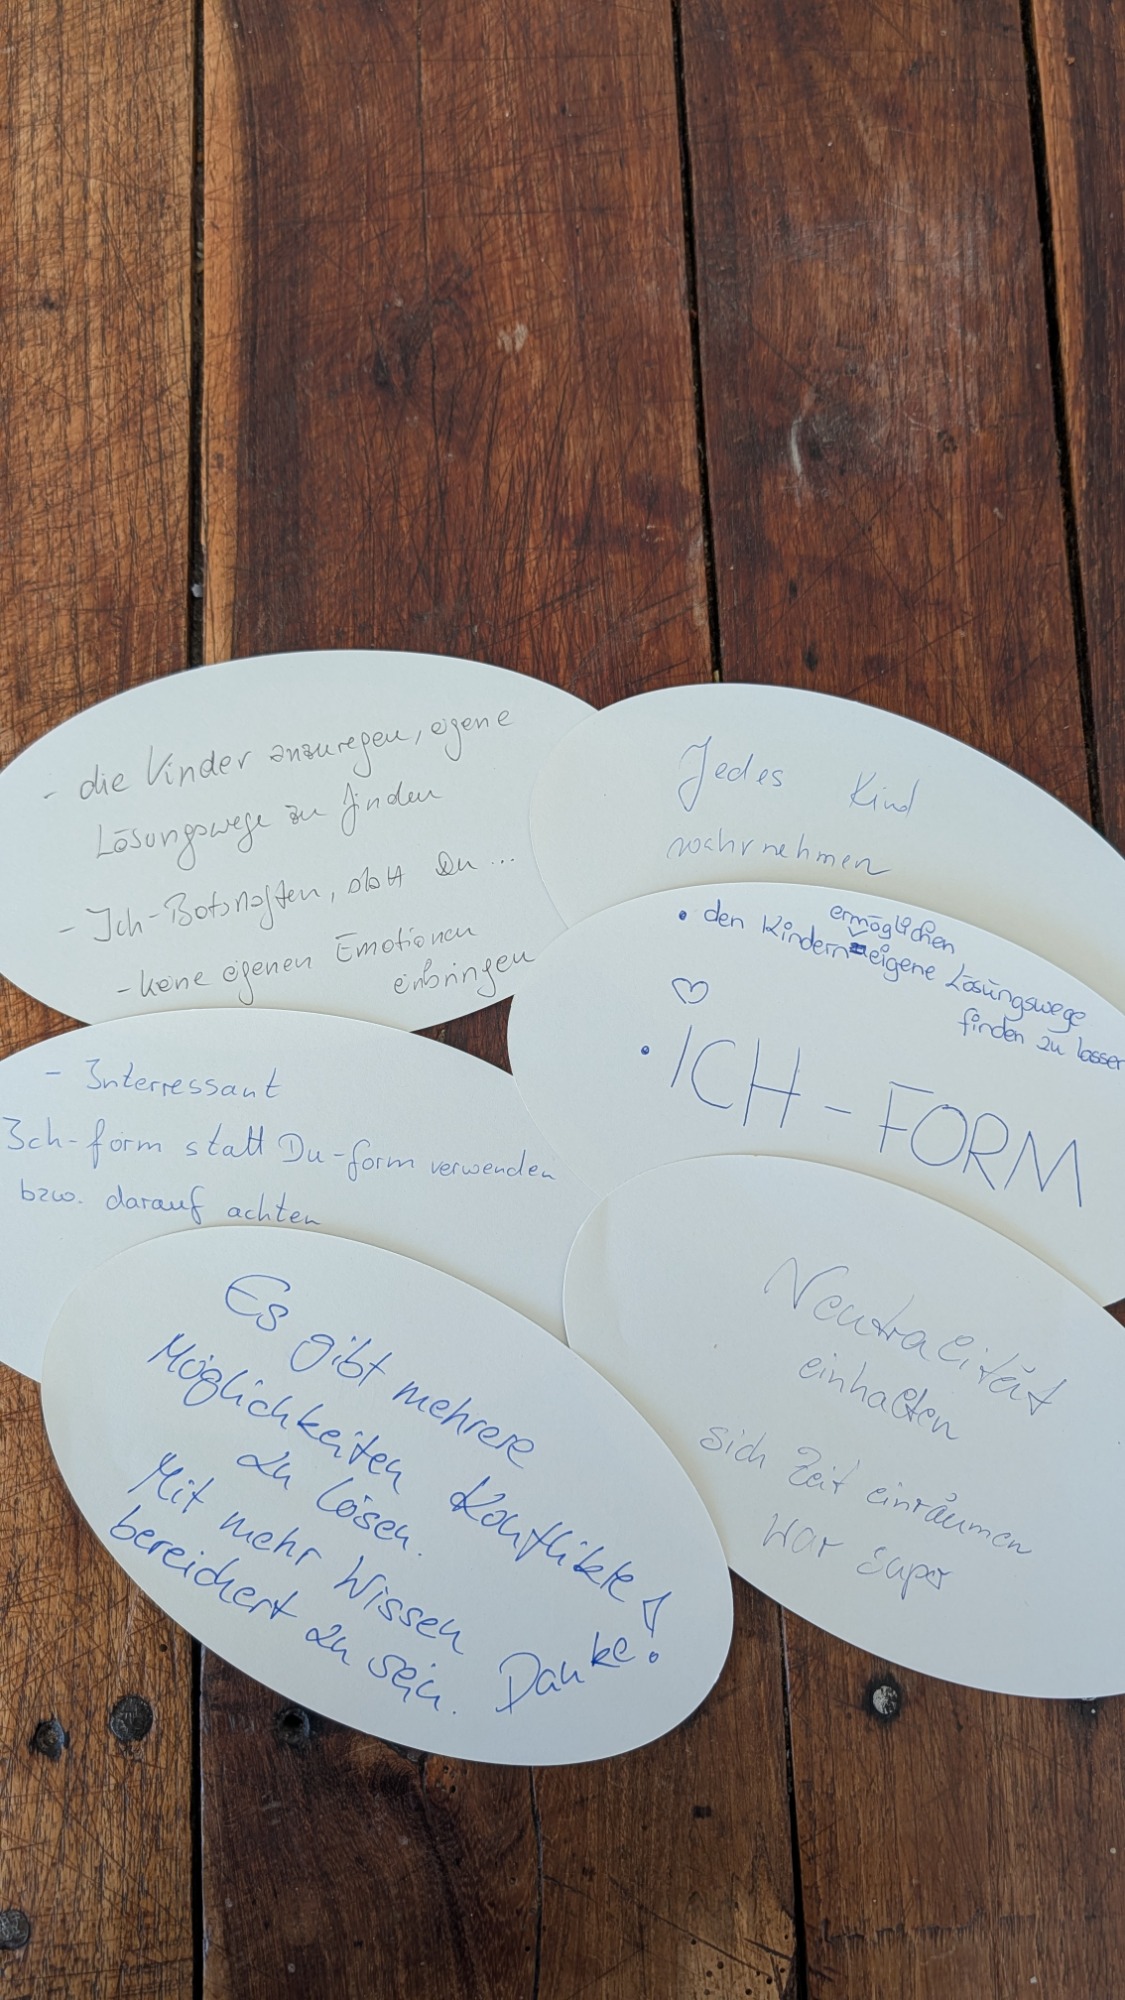 - die Kinder anzuregen, eigene
Lösungswege zu finden
- Ich-Botschaften, statt Du...
- keine eigenen Emotionen
einbringen
Jedes Kind
wahrnehmen
• den Kindern ermöglichen eigene Lösungswege
finden zu lassen
♡
• ICH-FORM
- Interressant
Ich-form statt Du-form verwenden
bzw. darauf achten
Es gibt mehrere
Möglichkeiten Konflikte
zu lösen.
Mit mehr Wissen
bereichert zu sein. Danke!
Neutralität
einhalten
sich Zeit einräumen
War super